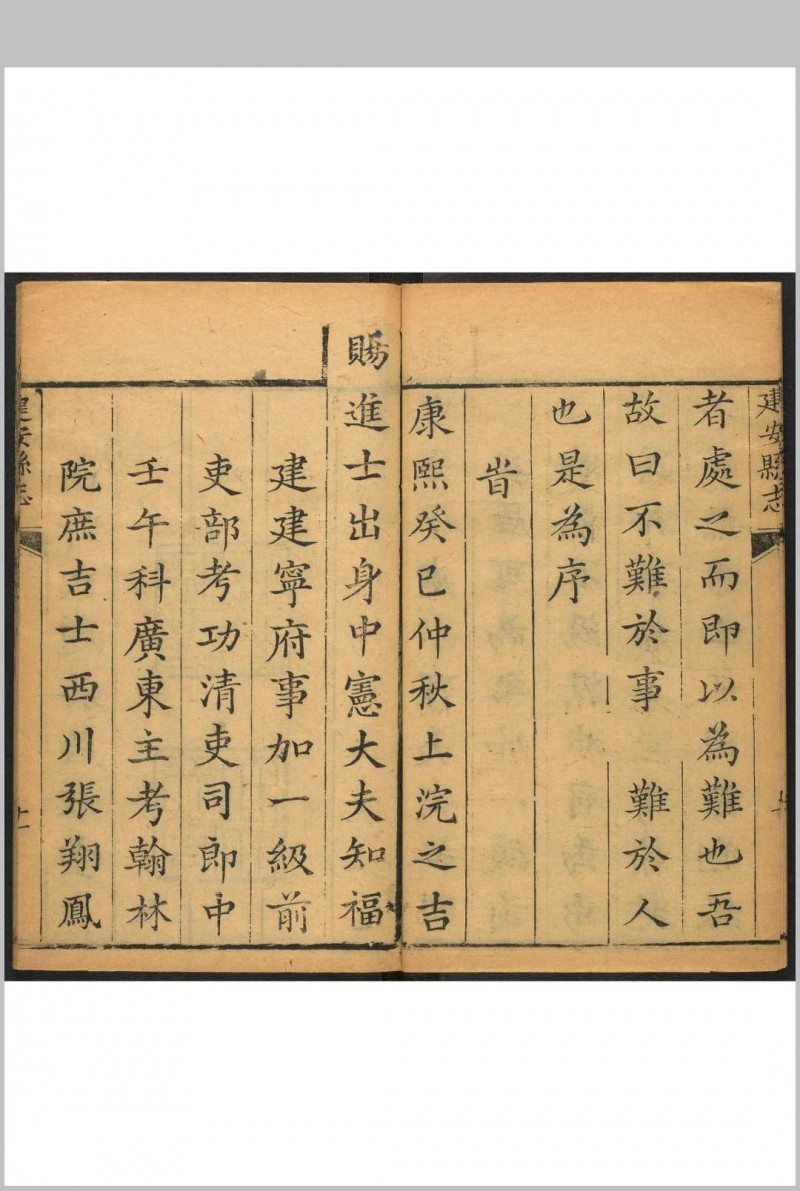 建安縣志
者處之而即以為難也吾
故曰不難於事 難於人
也是為序
旹
康熙癸巳仲秋上浣之吉
賜進士出身中憲大夫知福
建建寧府事加一級前
吏部考功清吏司郎中
壬午科廣東主考翰林
院庶吉士西川張翔鳳
建安縣志